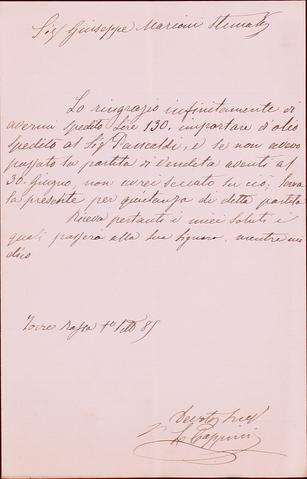 Sig Giuseppe Marioni Stimat
La ringrazio infinitamente di
avermi spedito Lire 130. importare d'olio
spedito al Sig Pancaldi, e se non avevo
passato la partita di Vendeta avanti al
30. Giugno, non avrei seccato su ciò, serva
la presente per quietanza di detta partita
Riceva pertanti i miei saluti i
quali passera alla sua Signora, mentre mi
dico
Torre 85
Devot